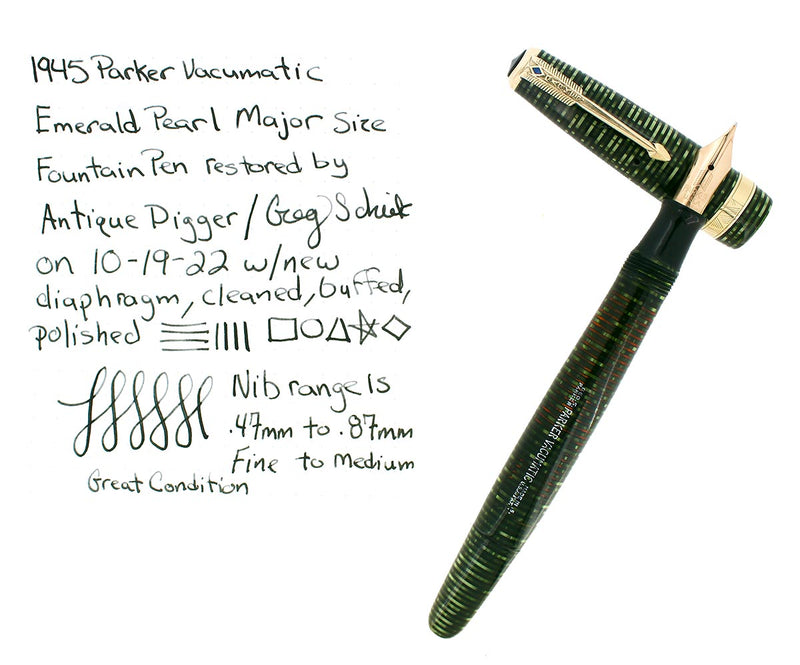 1945 Parker Vacumatic
Emerald Pearl Major Size
Fountain Pen restored by
Antique Digger/Greg
on 10-19-22 w/new
diaphragm, cleaned, buffed,
polished
Nib range is
.47mm to .87mm
Fine to Medium
Great Condition
PARKER VACUMATIC
MADE IN U.S.A.